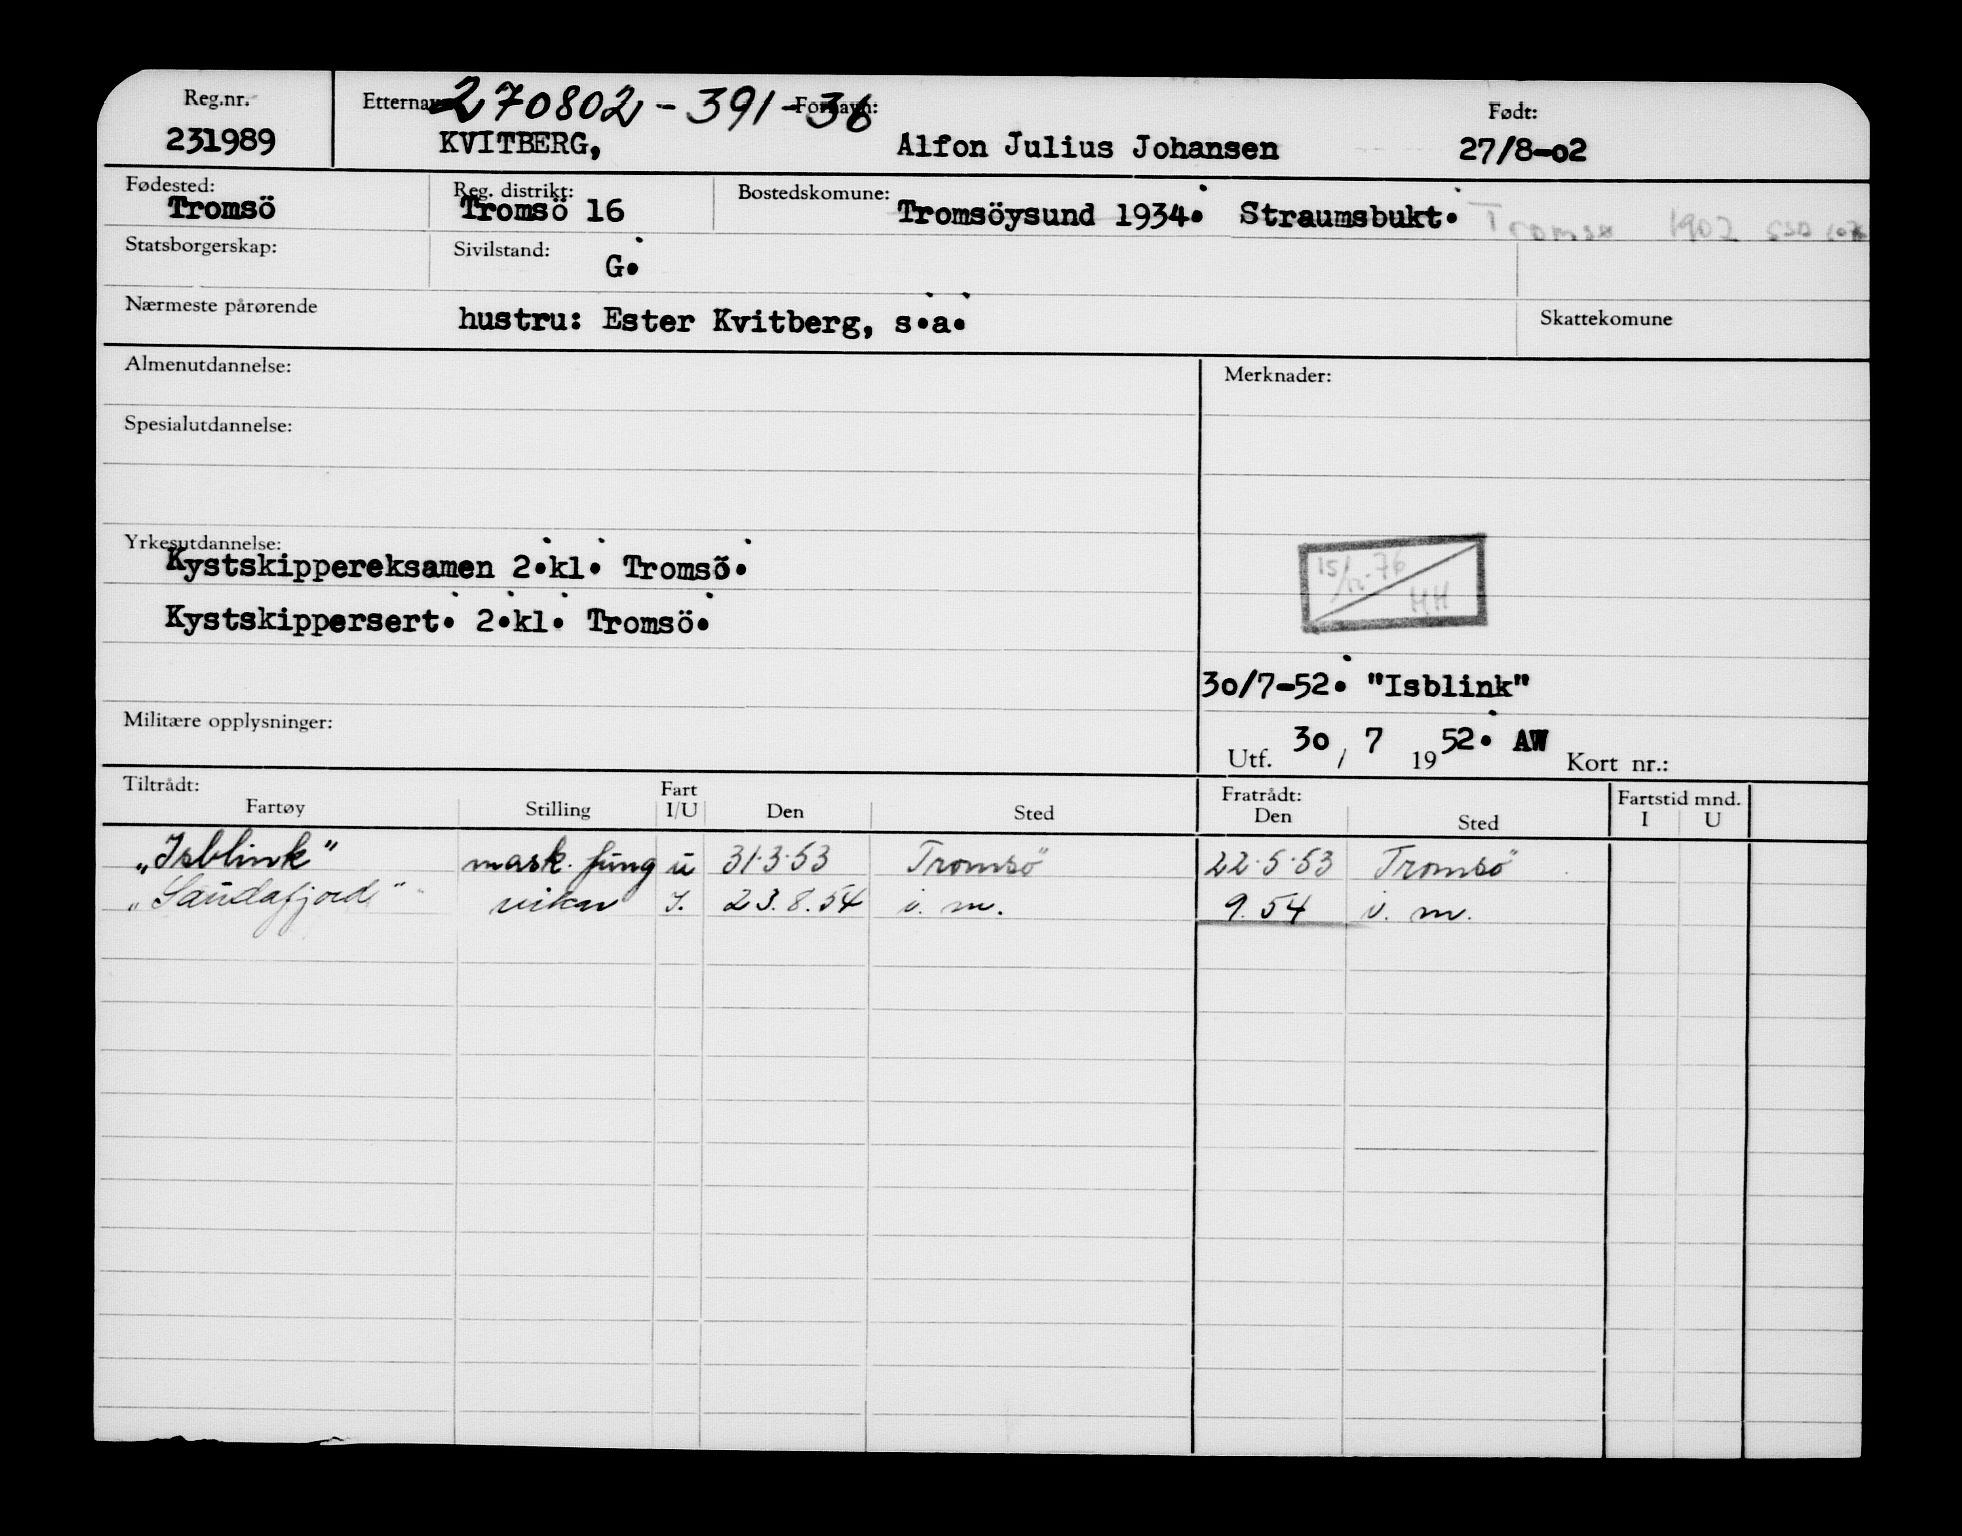 Reg.nr. Etternavn: 270802-391-36 Fornavn: Født:
231989 KVITBERG, Alfon Julius Johansen 27/8-o2
Fødested: Reg. distrikt: Bostedskomune:
Tromsö Tromsö 16 Tromsöysund 1934. Straumsbukt. Tromsø 1902
Statsborgerskap: Sivilstand: G.
Nærmeste pårørende hustru: Ester Kvitberg, s.a. Skattekomune
Almenutdannelse: Merknader:
Spesialutdannelse:
Yrkesutdannelse:
Kystskippereksamen 2.kl. Tromsö.
15/12-76
HH
Kystskippersert. 2.kl. Tromsö.
3o/7-52. "Isblink"
Militære opplysninger: Utf. 3o / 7 1952. AW Kort nr.:
Tiltrådt: Fratrådt: Fartstid mnd.
Fartøy Stilling Fart I/U Den Sted Den Sted I U
„Isblink" mask. fung u 31.3.53 Tromsö 22.5.53 Tromsö
„Sandafjord" vikar I. 23.8.54 i. m. 9.54 i. m.